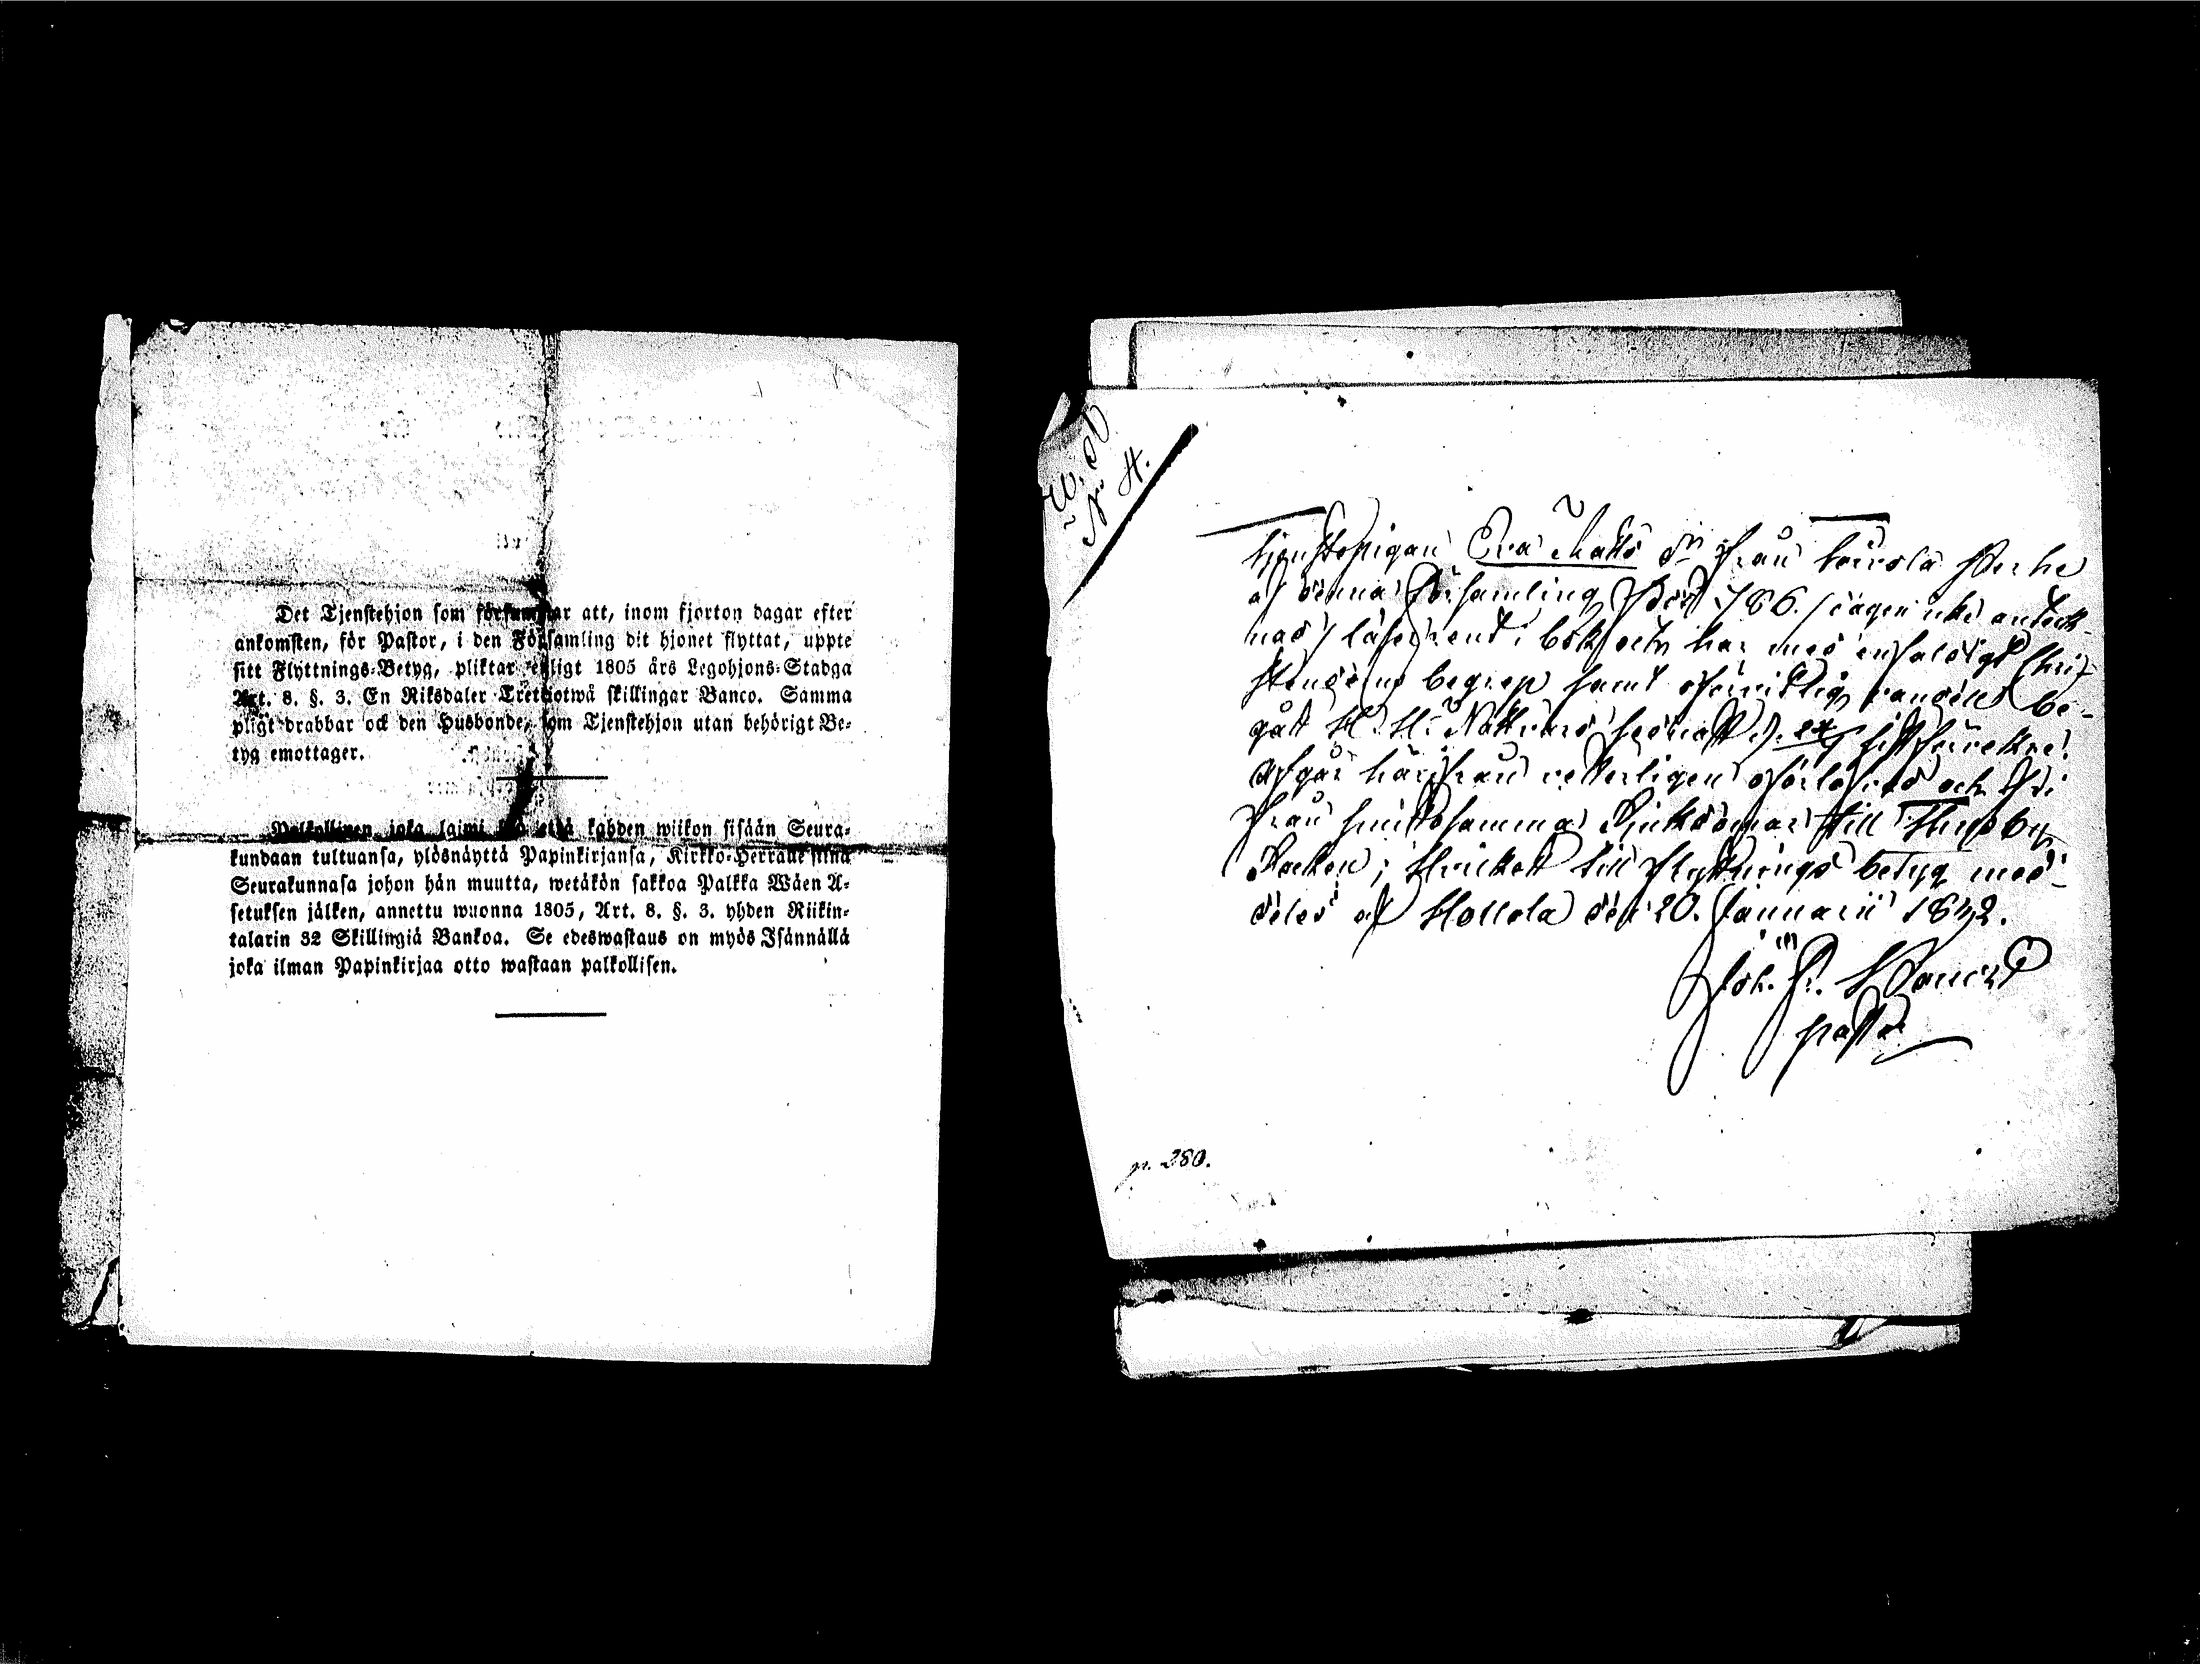 Det Tjenstehjon som försummar att, inom fjorton dagar efter
ankomsten, för Pastor, i den Församling dit hjonet flyttat, uppte
sitt Flyttnings-Betyg, pliktar enligt 1805 års Legohjons-Stadga
Art. 8. §. 3. En Riksdaler Trettiotwå skillingar Banco. Samma
pligt drabbar ock den Husbonde, som Tjenstehjon utan behörigt Be-
tyg emottager.
Palkollinen joka laimi että kahden wiikon sisään Seura-
kundaan tultuansa, ylösnäyttä Papinkirjansa, Kirkko-Herralle siinä
Seurakunnasa johon hän muutta, wetäkön sakkoa Palkka Wäen A-
setuksen jälken, annettu wuonna 1805, Art. 8. §. 3. yhden Riikin-
talarin 32 Skillingiä Bankoa. Se edeswastaus on myös Isännällä
joka ilman Papinkirjaa otto wastaan palkollisen.
N. 4.
Tjenstepigan Eva Matts dr från
af denna församling, född
nad / läser rent i bok och har med enfaldigt Chri-
stendoms begrep samt oförvitlig vandel be-
gått H. H. Nattvard sednast d.
Afgår härifrån
från till Husby
Socken; hvilket till flyttnings betyg med-
deles af Hollola den 20. Januarii 1832.
Joh. Fr.
past.
p. 280.